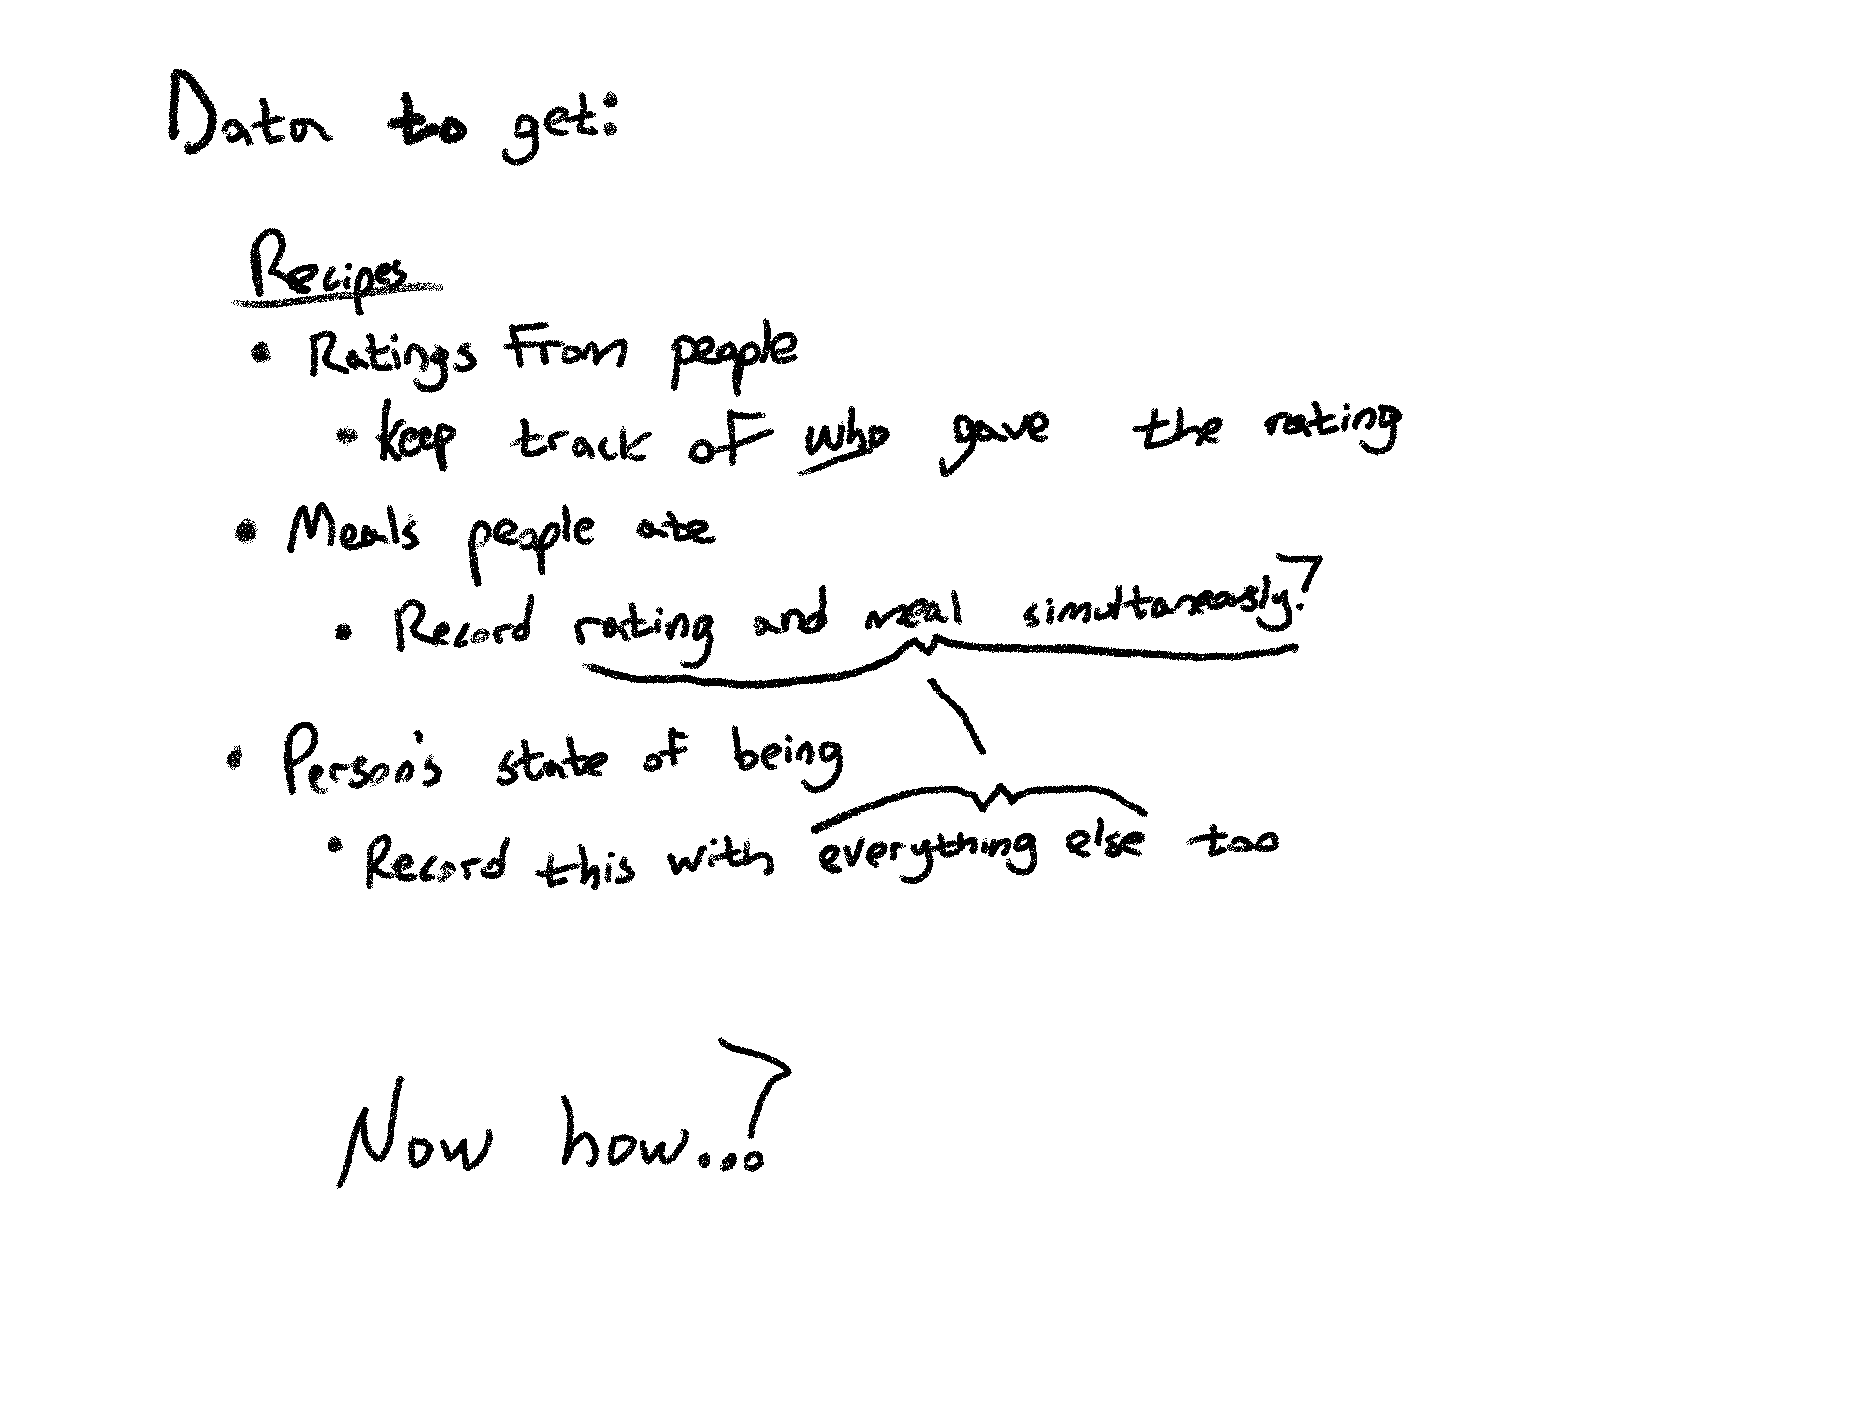 Data to get:
Recipes
• Ratings from people
• keep track of who gave the rating
• Meals people ate
• Record rating and meal simultaneasly?
• Person's state of being
• Record this with everything else too
Now how...?